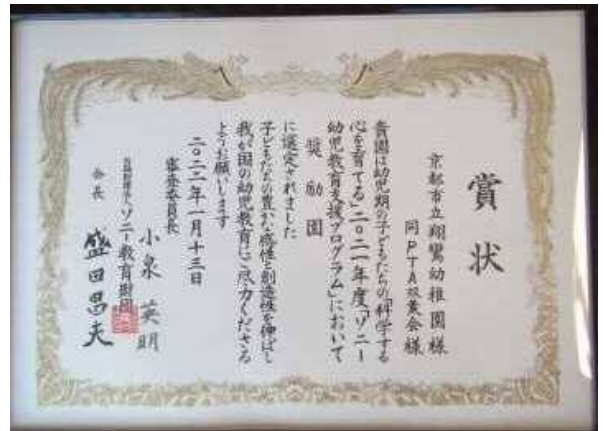 賞状
京都市立翔鸞幼稚園様
同PTA双葉会様
貴園は幼児期の子どもたちの「科学する
心を育てる」二〇二一年度「ソニー
幼児教育支援プログラム」において
奨励園
に選定されました
子どもたちの豊かな感性と創造性を伸ばし
我が国の幼児教育にご尽力くださる
ようお願いします
二〇二二年一月十三日
審査委員長
小泉英明
公益財団法人ソニー教育財団
会長
盛田昌夫